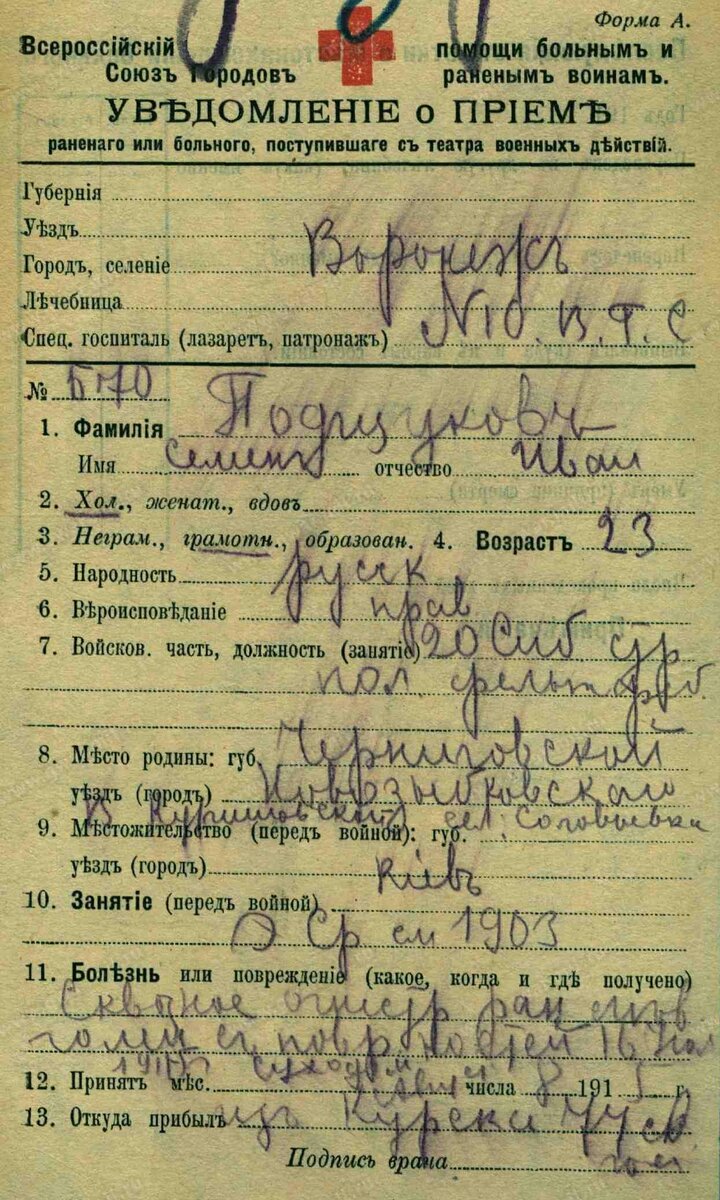 Форма А.
Всероссійскій помощи больнымъ и
Союзъ Городовъ раненымъ воинамъ.
УВѢДОМЛЕНІЕ о ПРІЕМѢ
раненаго или больного, поступившаго съ театра военныхъ дѣйствій.
Губернія
Уѣздъ
Городъ, селеніе Воронежъ
Лѣчебница
Спец. госпиталь (лазаретъ, патронажъ) №10. В. Г. С
№ 570
1. Фамилія Подщуковъ
Имя Семенъ отчество Иван
2. Хол., женат., вдовъ
3. Неграм., грамотн., образован. 4. Возрастъ 23
5. Народность русск
6. Вѣроисповѣданіе прав
7. Войсков. часть, должность (занятіе) 20 Сиб стр
пол.
8. Мѣсто родины: губ. Черниговской
уѣздъ (городъ) Новозыбковскаго
сел. Соловьевка
9. Мѣстожительство (передъ войной): губ.
уѣздъ (городъ) Кіевъ
10. Занятіе (передъ войной)
1903
11. Болѣзнь или поврежденіе (какое, когда и гдѣ получено)
Сквозное ран
голени съ
12. Принятъ мѣс. числа 8 1915 г.
13. Откуда прибылъ изъ Курска
Подпись врача